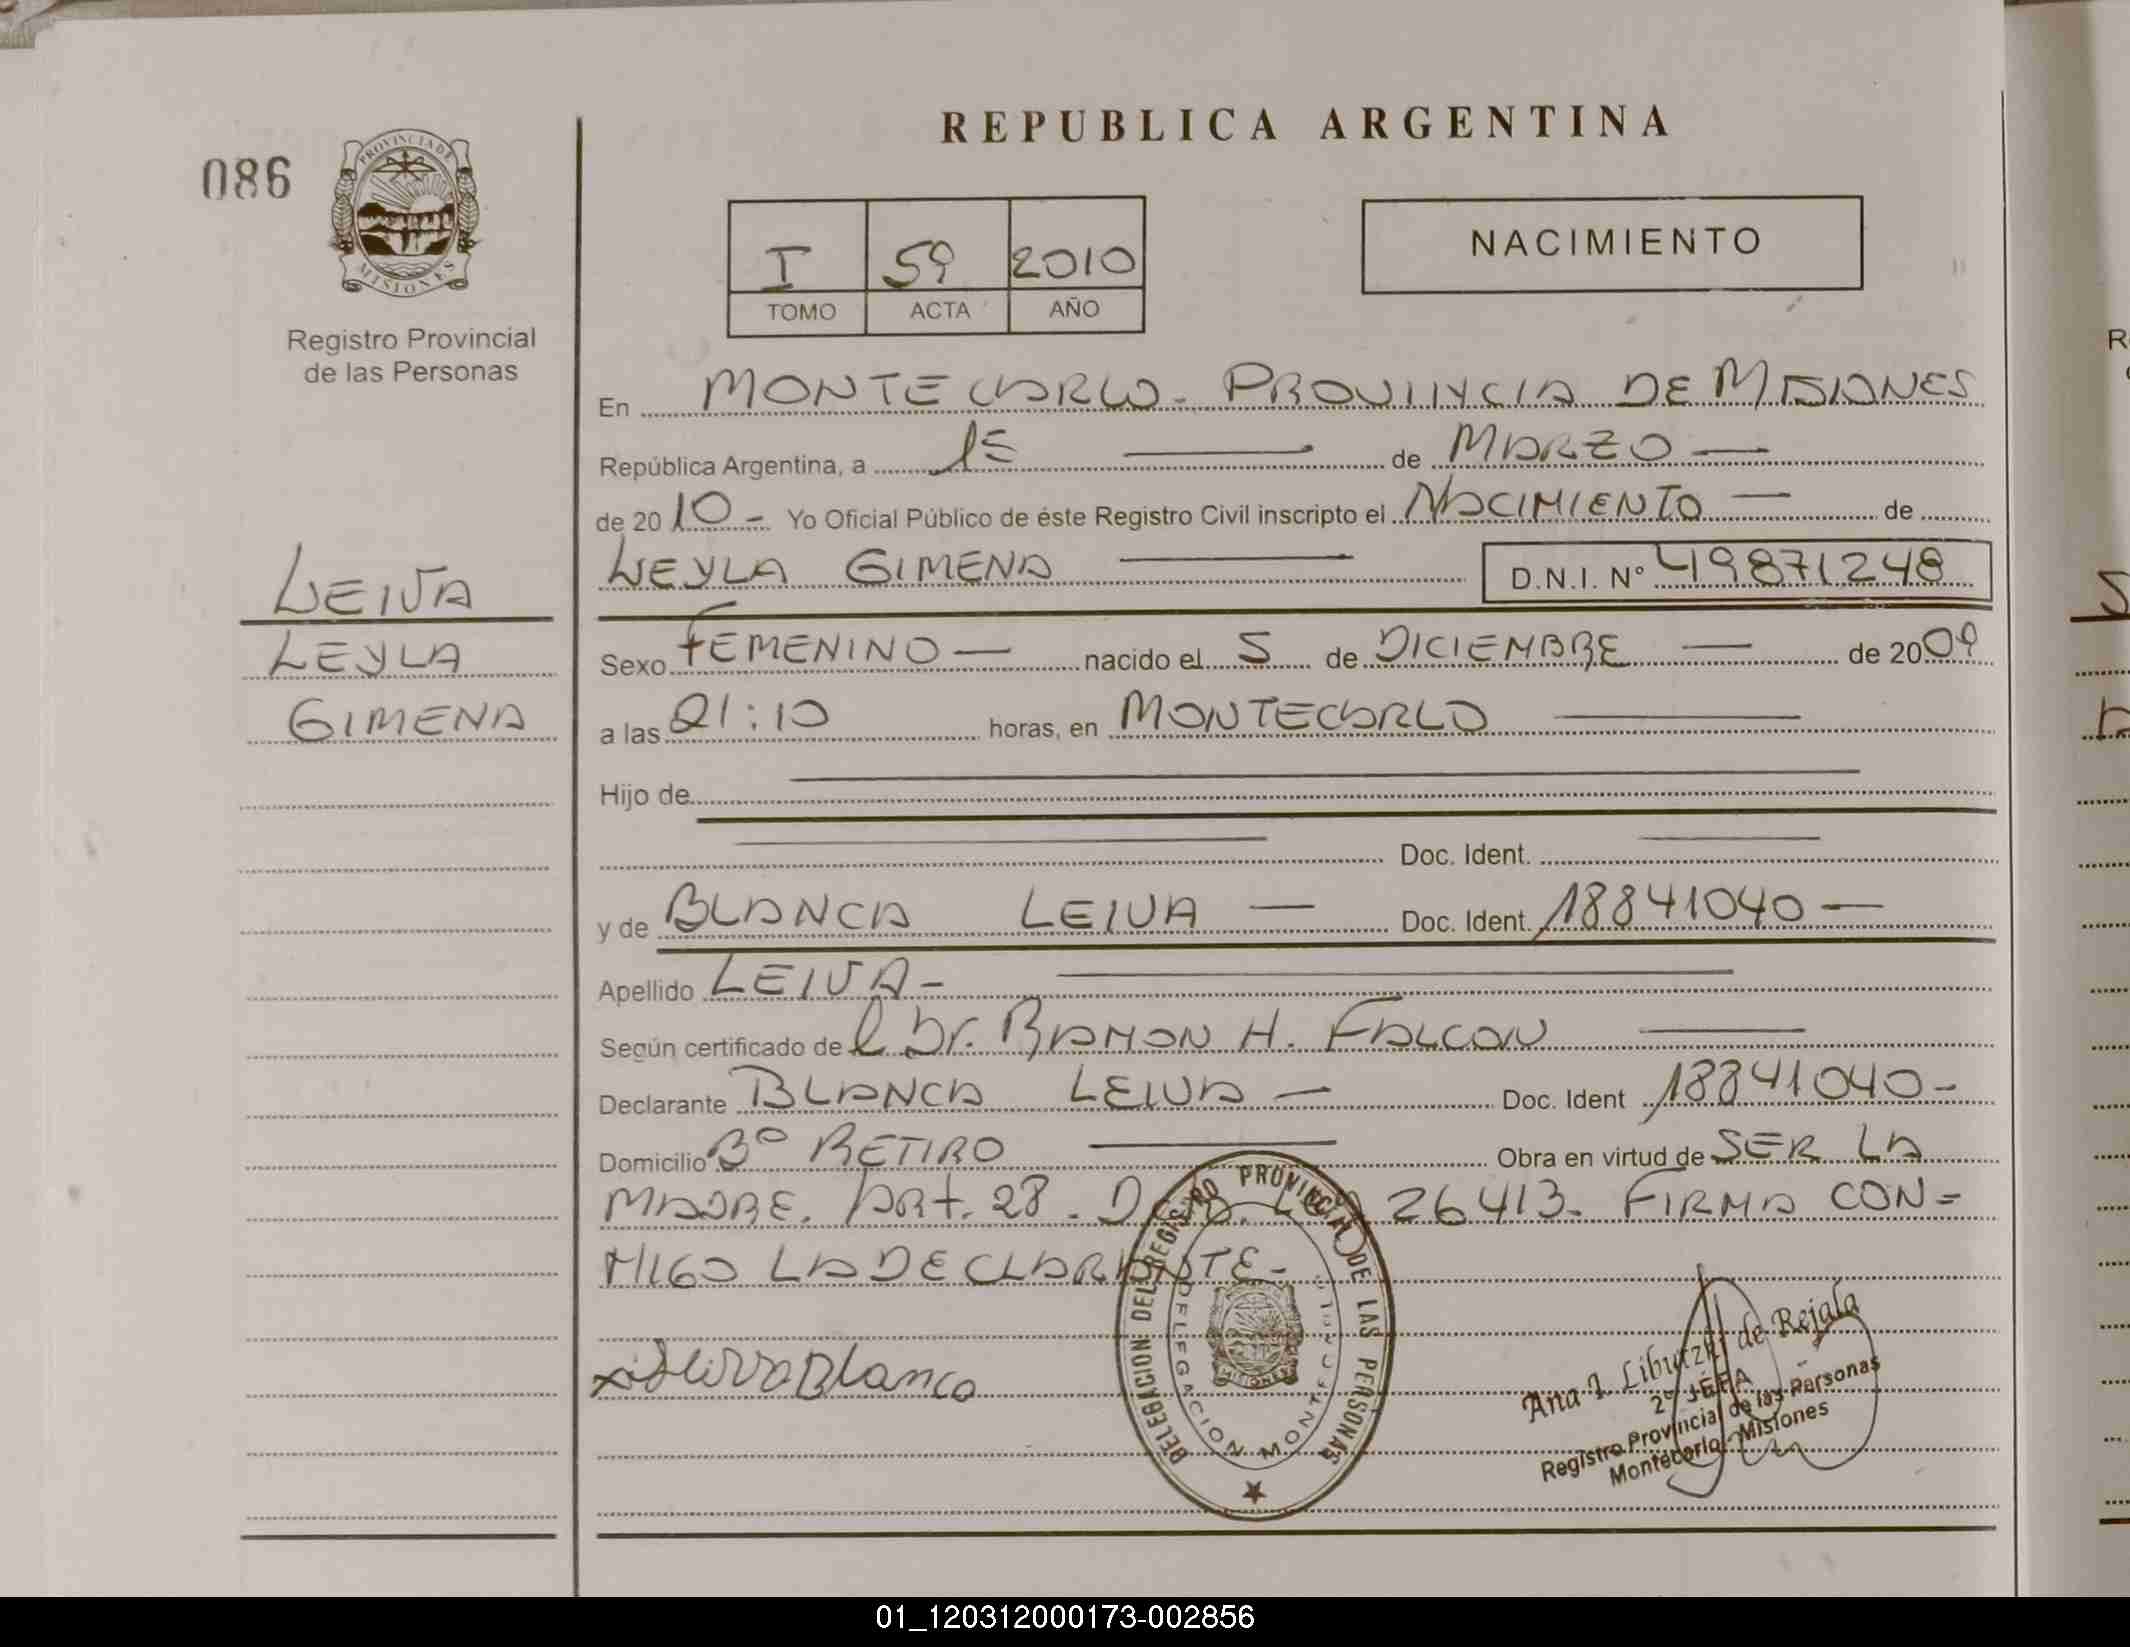 REPUBLICA ARGENTINA
086
PROVINCIA DE
MISIONES
Registro Provincial
de las Personas
I 59 2010
TOMO ACTA AÑO
NACIMIENTO
En MONTECARLO - PROVINCIA DE MISIONES
República Argentina, a 15 — de MARZO —
de 2010 - Yo Oficial Público de éste Registro Civil inscripto el NACIMIENTO — de
LEYLA GIMENA — D.N.I. Nº 49871248
LEIVA
LEYLA
GIMENA
Sexo FEMENINO — nacido el 5 de DICIEMBRE — de 2009
a las 21:10 horas, en MONTECARLO —
Hijo de —
— Doc. Ident. —
y de BLANCA LEIVA — Doc. Ident. 18841040 —
Apellido LEIVA - —
Según certificado de l Dr. RAMON H. FALCON —
Declarante BLANCA LEIVA — Doc. Ident 18841040 -
Domicilio Bº RETIRO — Obra en virtud de SER LA
MADRE. Art. 28. 26413. FIRMA CON=
MIGO LA DECLARANTE -
x Leiva Blanca
DELEGACION DEL REGISTRO PROVINCIAL DE LAS PERSONAS
DELEGACION MONTECARLO
MISIONES
Ana I. de Rejala
2º JEFA
Registro Provincial de las Personas
Montecarlo - Misiones
01_120312000173-002856